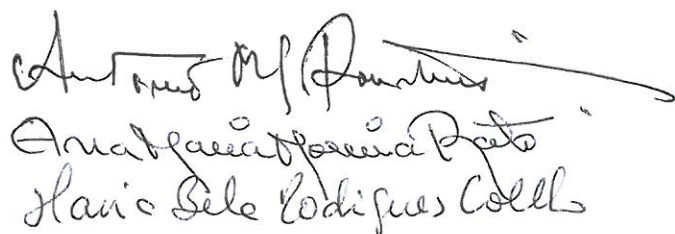 António M.
Ana Maria Moreira Rato
Maria Bela Rodrigues Coelho